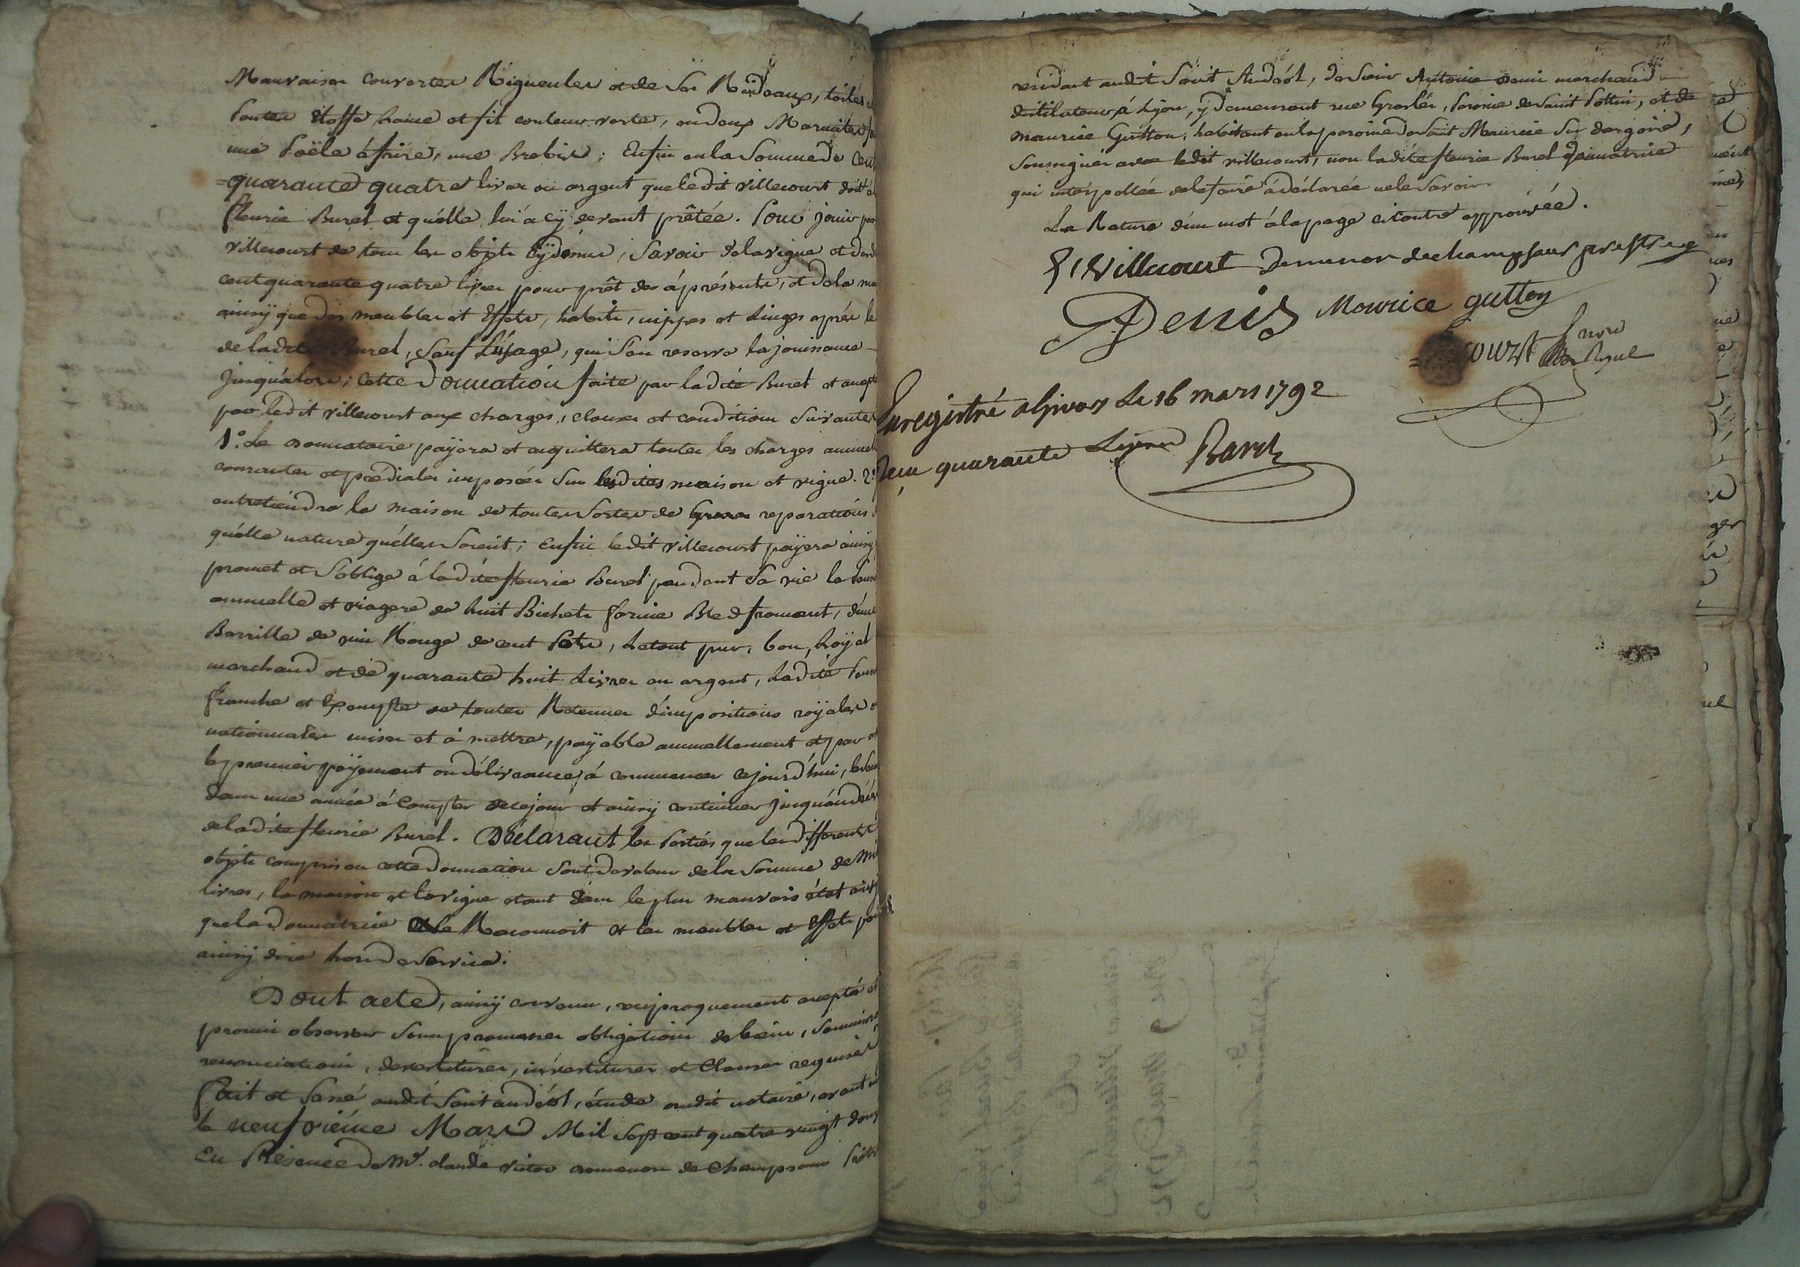 Mauvaises couvertes Piquentes et de Six Rideaux, toiles
toutes étoffe laine et fil couleur verte, en deux Marmites
une Poële à frire, une Brebis; Enfin en la Somme de Cent
quarante quatre livres en argent que ledit villecourt doit à
fleurie Burel et qu'elle lui a cÿ devant prêtée. Pour jouir par
villecourt de tous les objets cÿ donné, Savoir de la vigne et des
cent quarante quatre livres pour prêt dès à présent, et de la
ainsÿ que des meubles et Effets, habits, nippes et Linges après le
de ladite Burel, Sauf l'usage, qui s'en reserve la jouissance
jusqu'alors; cette Donnation faite par ladite Burel et accepté
par ledit villecourt aux charges, clauses et conditions Suivantes
1.° Le donnataire payera et acquittera toutes les charges annuel
et prediales imposées Sur lesdites maison et vigne. 2.°
entretiendra la maison de toutes Sortes de reparations
qu'elle nature qu'elles Soient; Enfin ledit villecourt payera ainsÿ
promet et S'oblige à ladite fleurie Burel pendant Sa vie la
annuelle et viagere de huit Bichets farine Bled froment, d'une
Barrille de vin Rouge de cent Pots, Le tout pur, bon, Loÿal
marchand et de quarante huit Livres en argent, Ladite
franche et Exempte de toutes Retenues d'impositions roÿales
nationnales mises et à mettre, paÿable annuellement et par
le premier païement ou délivrance, à commencer cejourd'hui,
dans une année à Compter de ce jour et ainsÿ continuer jusqu'au décès
de ladite fleurie Burel. Déclarant les Parties que les différents
objets compris en cette donnation Sont de valeur de la Somme de
livres, la maison et la vigne étant dans le plus mauvais état ainsÿ
que la donnatrice Le Reconnoit et les meubles et Effets pour
ainsÿ dire hors de Service.
Dont acte, ainsÿ convenu, reciproquement accepté et
promis observer Sous promesses obligations de biens, Soumissions
renonciations, devestitures, investitures et Clauses requises
Fait et Passé audit Saint andéol, étude dudit notaire, avant
le neufvième Mars Mil Sept cent quatre vingt douze
En Présence de Mr. claude victor demenon de Champsaur Prêtre
residant audit Saint Andéol, de Sieur Antoine Denis marchand
distilateur à Lyon, ÿ demeurant rue Groslée, Paroisse de Saint Pottin, et de
maurice Gutton, habitant en la paroisse de Saint Maurice Sur dargoire,
Soussignés avec ledit villecourt, non ladite fleurie Burel donnatrice
qui interpellée de le faire à déclarée ne le Savoir.
La Rature d'un mot à la page ci contre approuvée.
Villecourt Demenon dechampsaur prestre
Denis Mourice gutton
Enregistré a Givors Le 16 mars 1792
Reçu quarante Livres